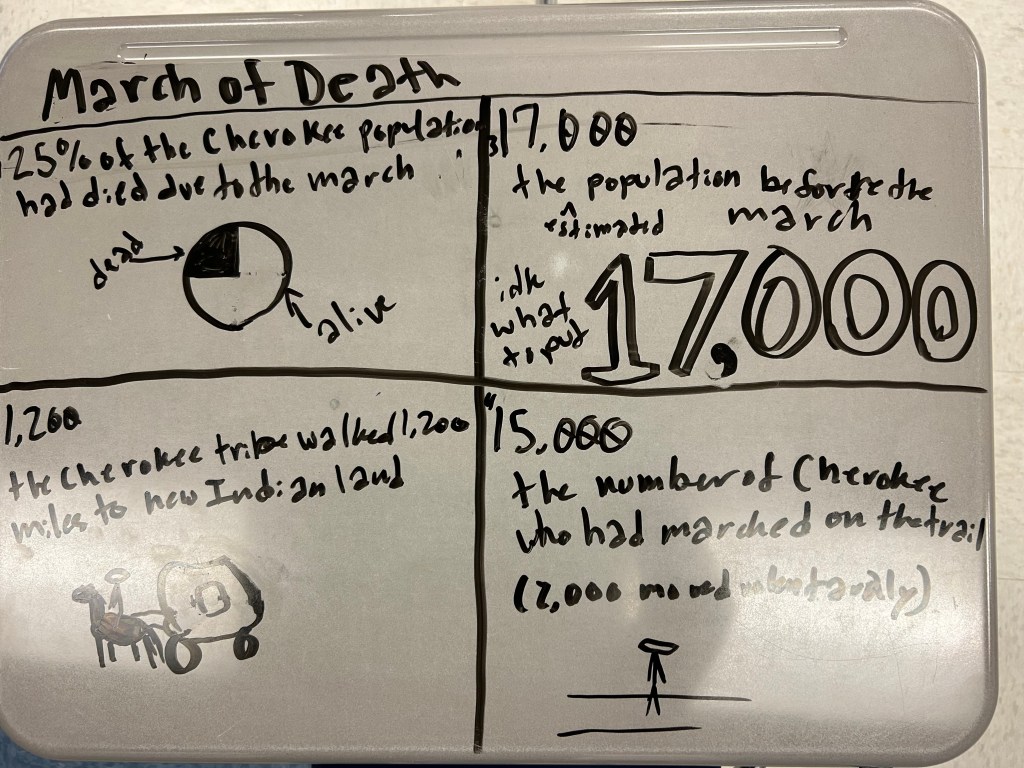 March of Death
25% of the Cherokee population
had died due to the march
dead
alive
17,000
the population before the
estimated
march
idk
what
to put
17,000
1,200
the Cherokee tribe walked 1,200
miles to new Indian land
15,000
the number of Cherokee
who had marched on the trail
(2,000 moved